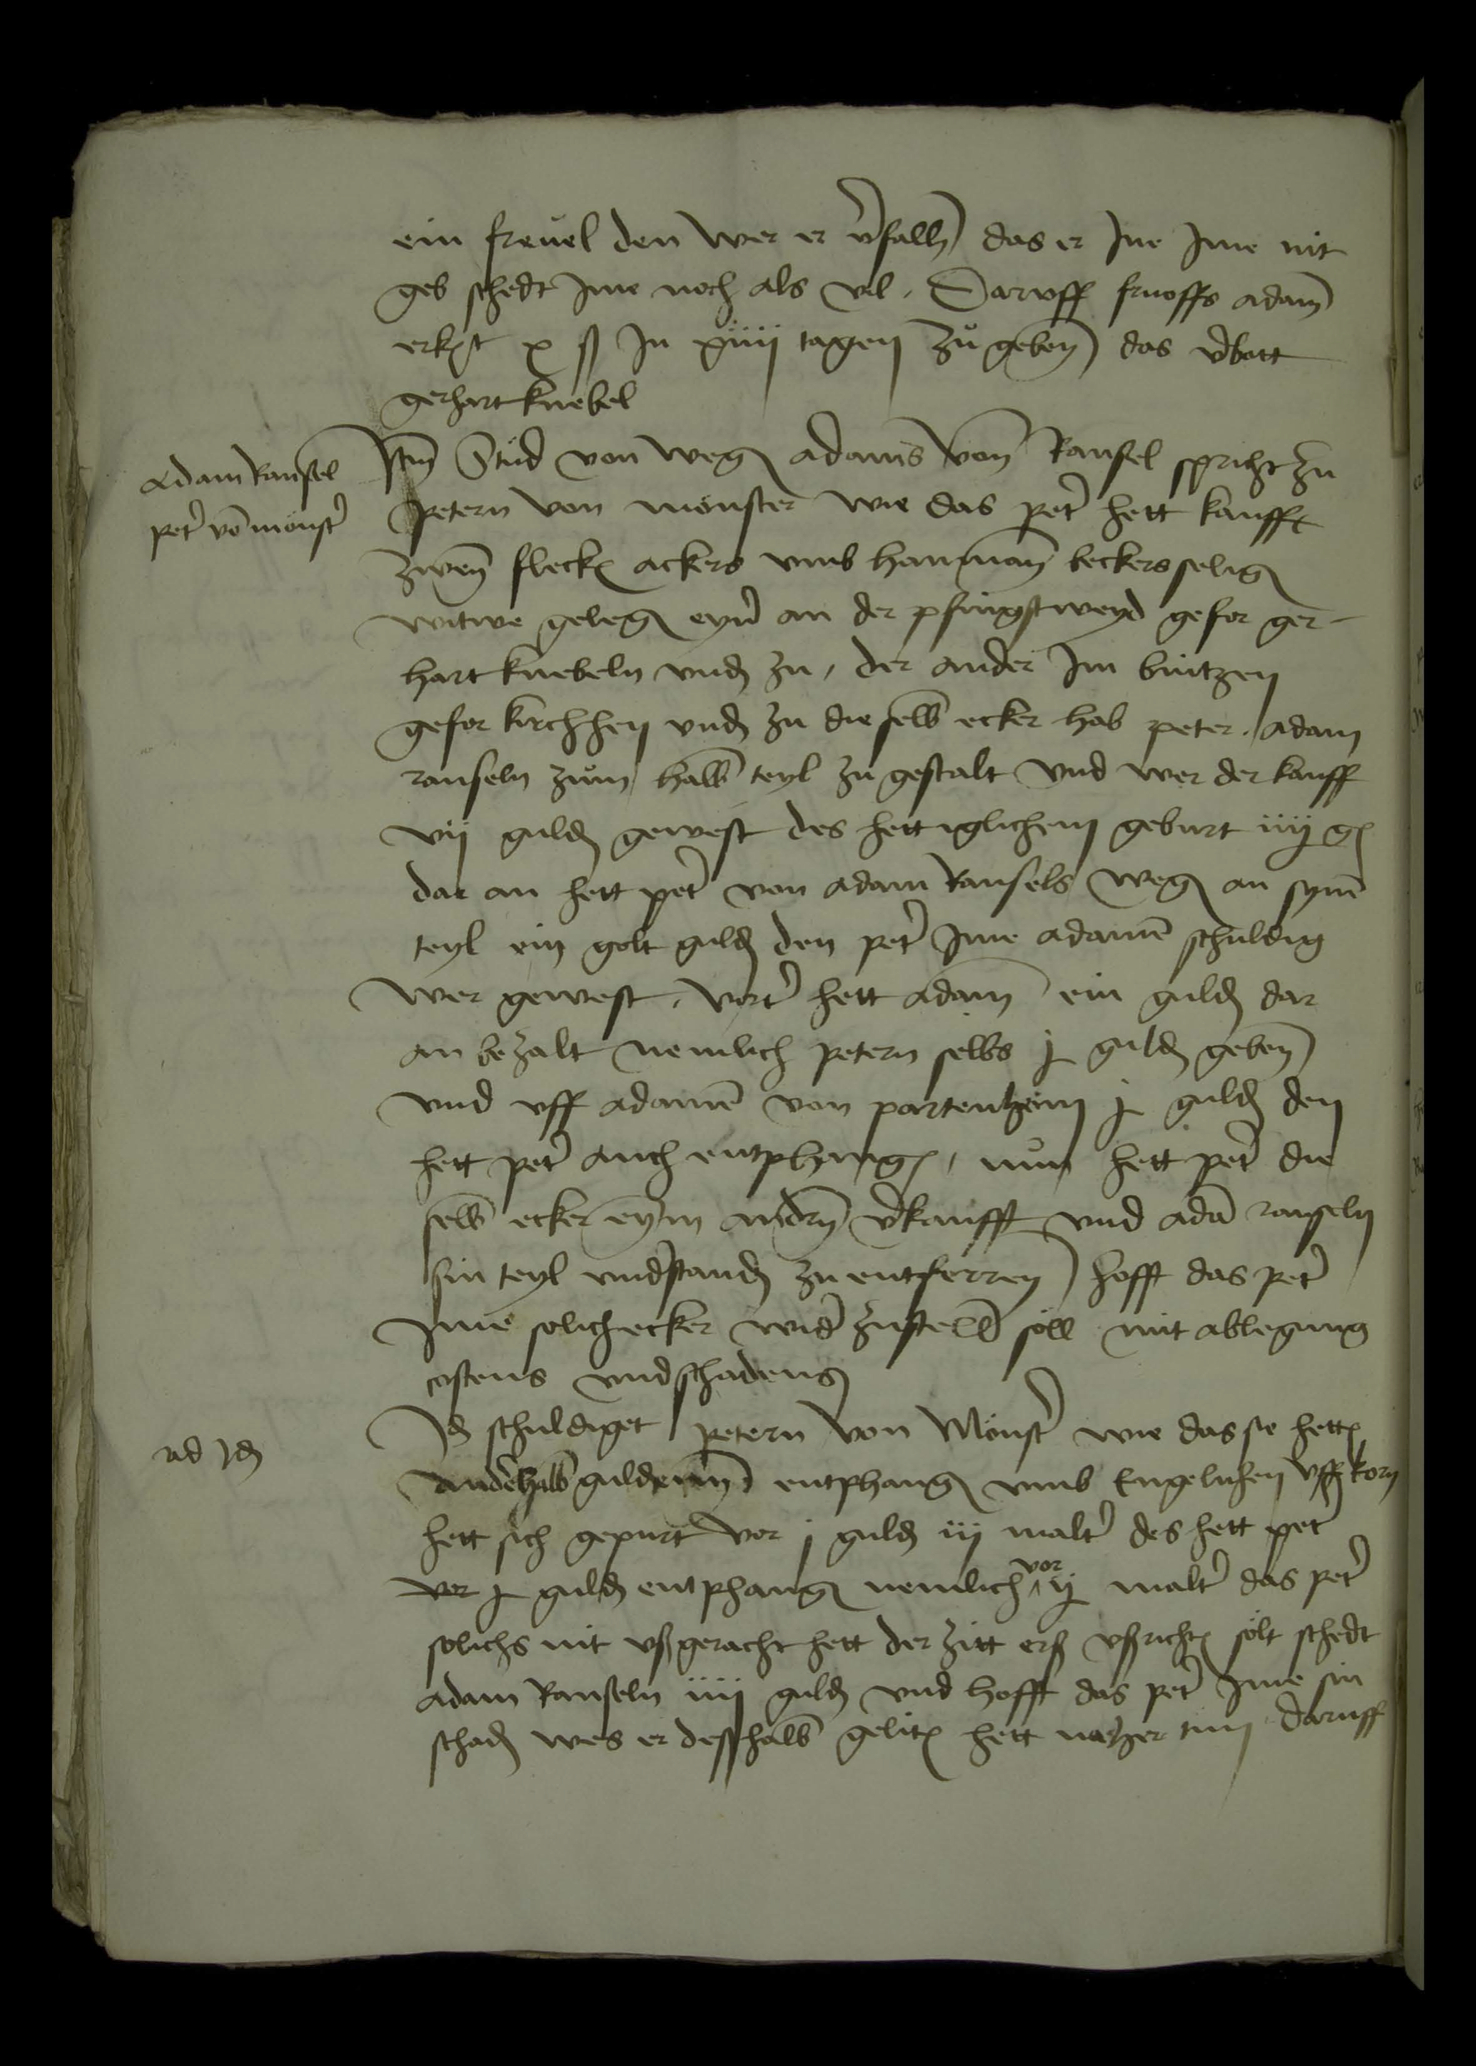 ein freuel den wer er v̾falln das er Ine Ime nit
geb schedt Ime noch als vil . Daruff frooffs adam
erkēt x ß In xiiii tagen zu geben das v̾bott
gerhart knebel
Adam Ransel
pet̾ vō monst̾
Itm̄ Stud von weḡ adams von Ransel spricht zu
petern von monster wie das pet̾ hett kaufft
zwen fleck̄ ackers vmb hanman beckers seliḡ
witwe geleḡ eyn̾ an der pfingstweyd gefor ger-
hart knebeln vnd̄ zu , der ander Im bintzen
gefor kirchhen vnd̄ zu die selb̄ ecker hab peter adam
ranseln zum halb̄ teyl zu gestalt vnd wer der kauff
vij guld̄ gewest des hett iglichem geburt iiij ḡ
dar an hett pet̾ von adam Ransels weḡ an sym̄
teyl ein golt guld̄ den pet̾ Ime adamē schuldig
wer gewest , vort̾ hett adam ein guld̄ dar
an bezalt nemlich petern selbs j guld̄ geben
vnd vff adamē von partenheim j guld̄ den
hett pet̾ auch entphanḡ , nun hett pet̾ die
selb̄ ecker eym andrn v̾kaufft vnd adā ranseln
sin teyl vnd̾stand̄ zu entferren hofft das pet̾
Ime solich ecker wid̾ zustelln söll mit ablegung
costens vnd schadens
ad Id̄
Id̄ schuldiget petern von Monst̾ wie das sie hett̄
And̾halb gulden entphanḡ vmb Engelnhen vff korn
hett sich gepurt vor j guld̄ iij malt̾ des hett pet̾
vor j guld̄ entphanḡ nemlich vor ij malt̾ das pet̾
solichs nit vßgeracht hett der zitt erß vßricht̄ sölt schedt
adam Ranseln iiij guld̄ vnd hofft das pet̾ Ime sin
schad̄ wes er desshalb̄ gelit̄ hett ker tun Daruff